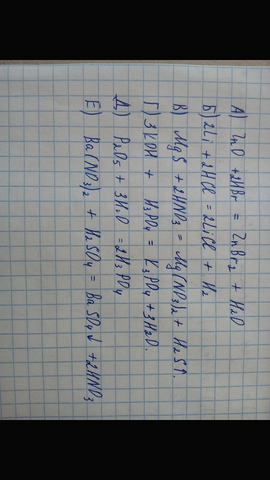 А) ZnO + 2HBr = ZnBr₂ + H₂O
Б) 2Li + 2HCl = 2LiCl + H₂
В) MgS + 2HNO₃ = Mg(NO₃)₂ + H₂S↑.
Г) 3KOH + H₃PO₄ = K₃PO₄ + 3H₂O.
Д) P₂O₅ + 3H₂O = 2H₃PO₄
Е) Ba(NO₃)₂ + H₂SO₄ = BaSO₄↓ + 2HNO₃